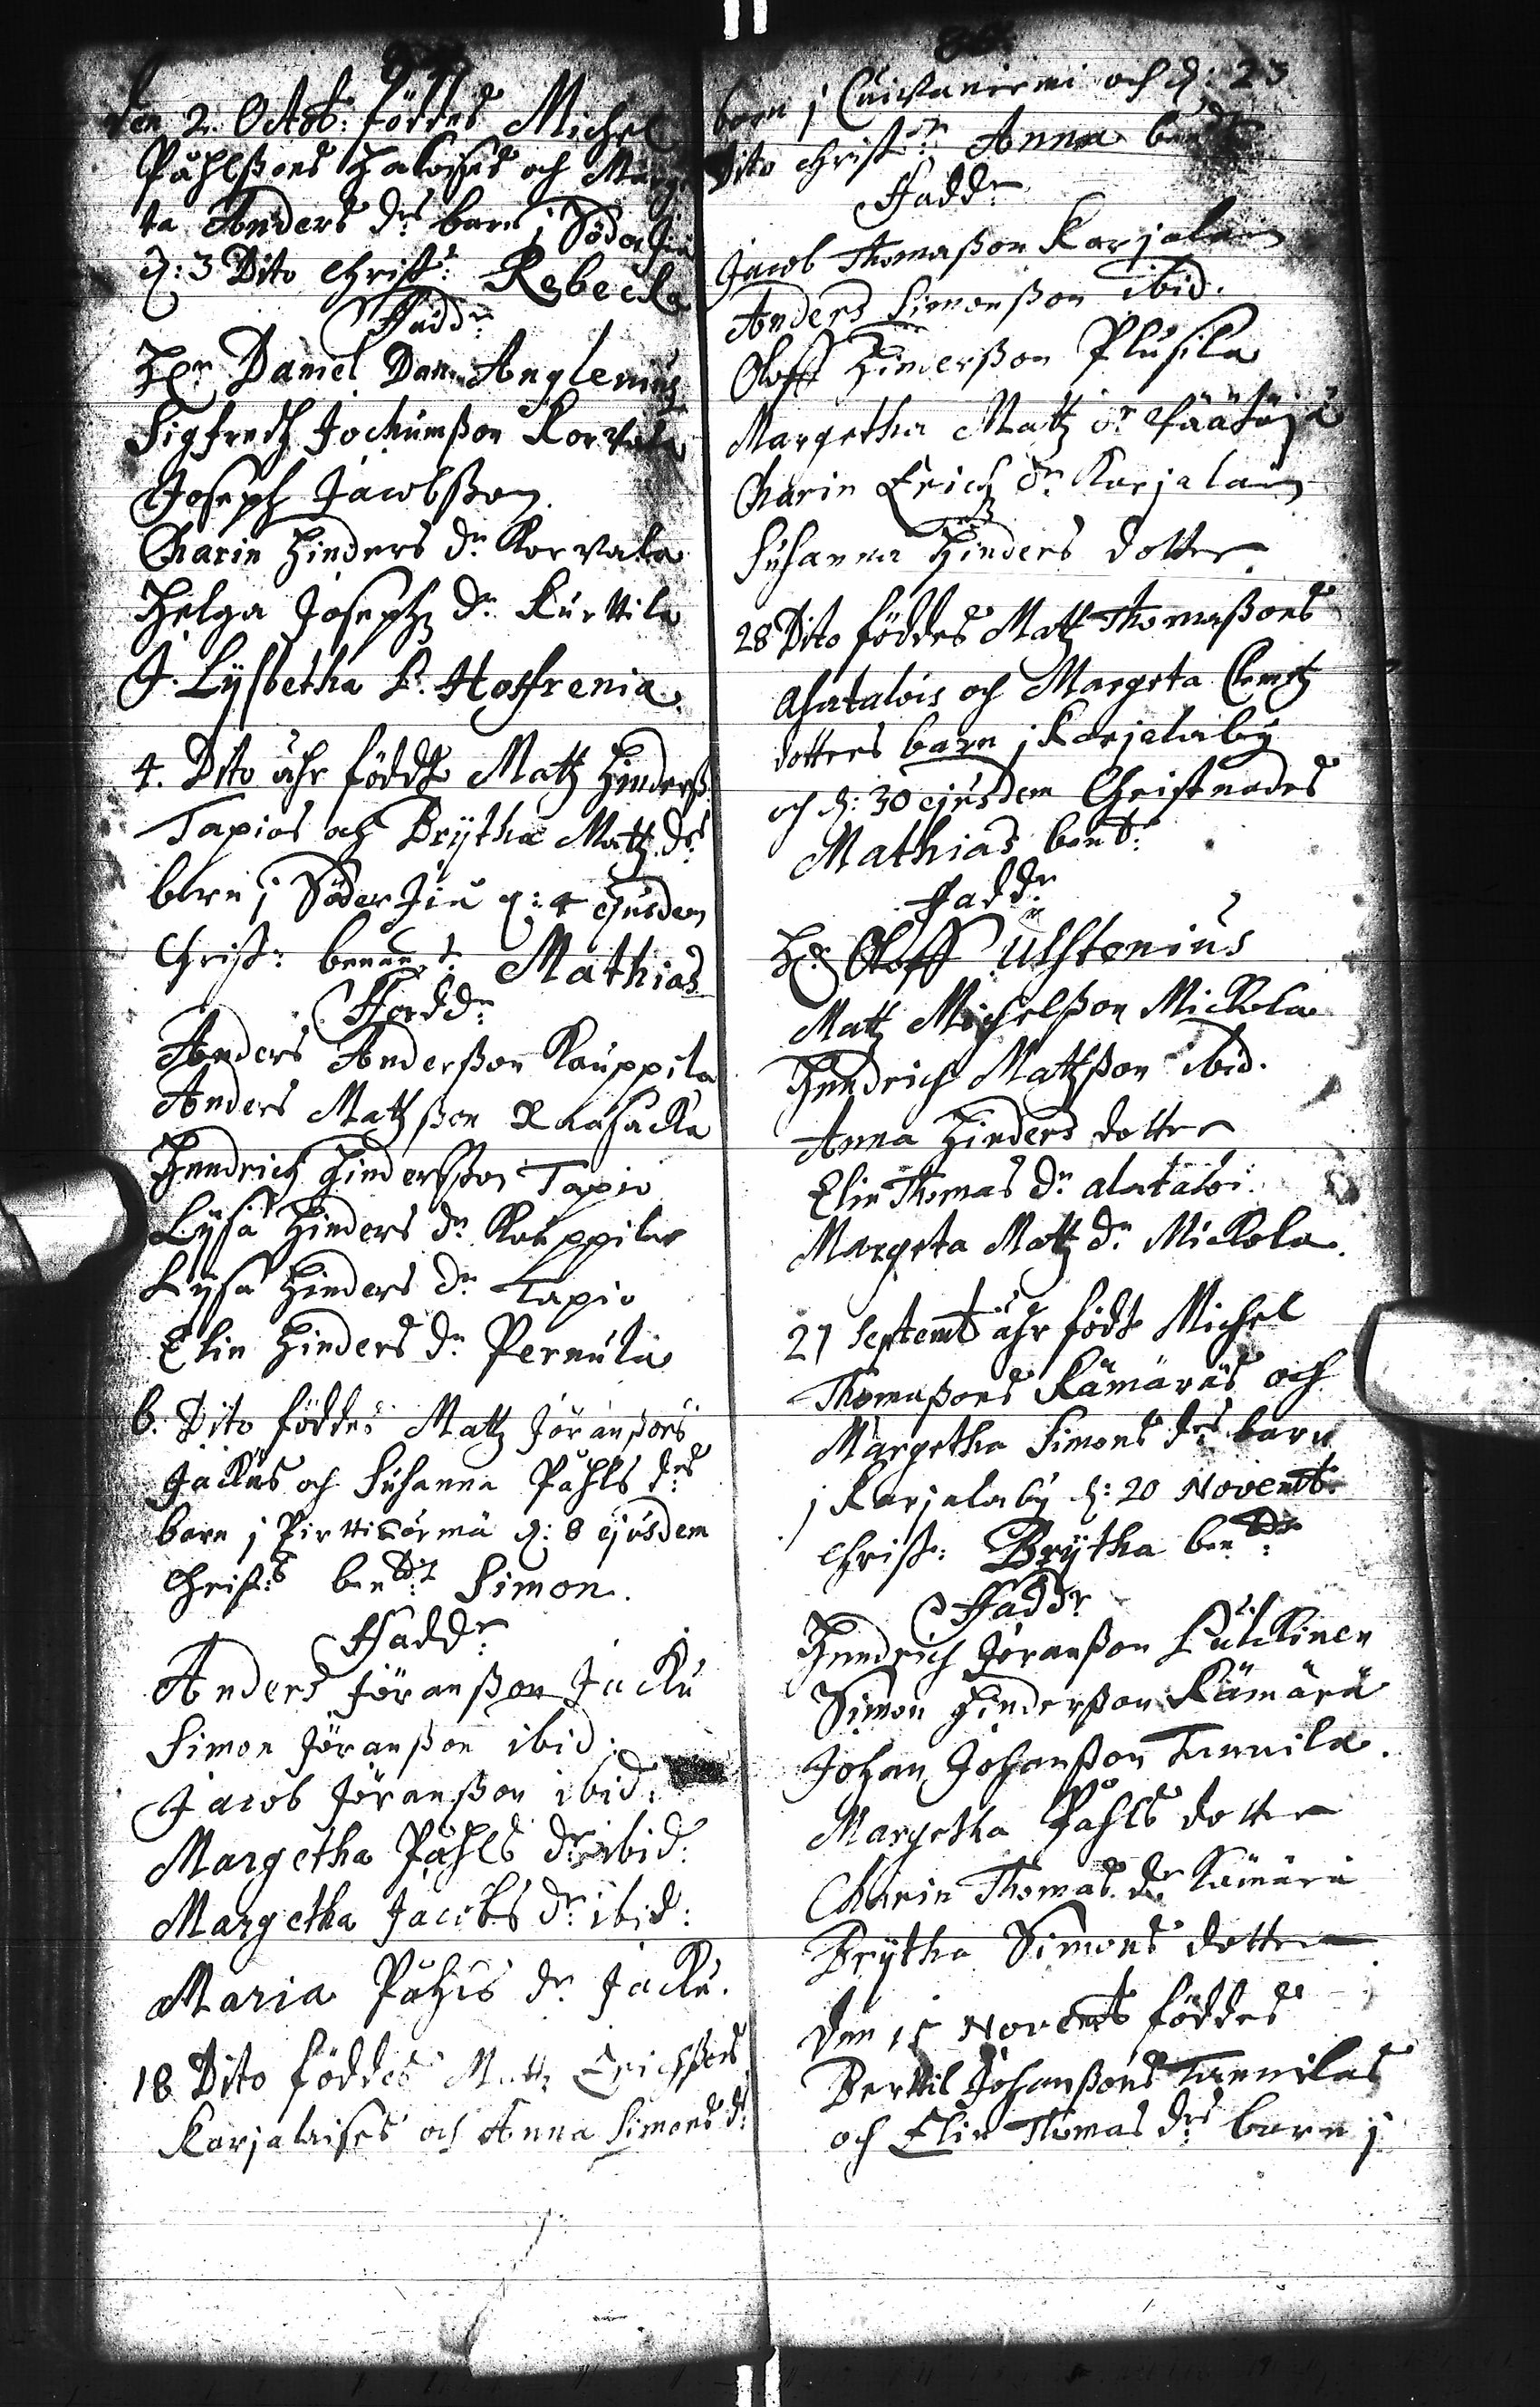 Den 2. Octob: föddes Michel
Påhlßons Haloses och Marge
ta Anders drs barn j Söder Jiå
d: 3 Dito Christ: Rebecka
Faddr
Hr Daniel Dan: Anglenius
Sigfredh Jochumßon Korvala
Joseph Jacobßon
Charin Hinders dr Korvala
Helga Josephz dr Kurttila
J. Lysbetha L. Hoffrenia
4. Dito ähr född Matz Hinderß:
Tapios och Brÿtha Matz drs
barn j Söder Jiå d: 4 ejusdem
Christ: benemt: Mathias
Faddr
Anders Anderßon Kauppila
Anders Matzßon Raasacka
Hendrich Hinderßon Tapio
Lÿsa Hinders dr Kauppila
Lÿsa Hinders dr Tapio
Elin Hinders dr Pernula
6. Dito föddes Matz Jöranßons
Jackus och Susanna Påhls drs
barn j Pirttisörmä d: 8 ejusdem
Christ: bendt Simon.
Faddr
Anders Jöranßon Jacku
Simon Jöranßon ibid:
Jacob Jöranßon ibid:
Margetha Påhls dr ibid:
Margetha Jacobs dr ibid:
Maria Påhls dr Jacku.
18 Dito föddes Matz Erichßons
Karjalaises och Anna Simons dr
barn j Cuivaniemi och d: 23
Dito Christn Anna bendt
Faddr
Jacob Thomaßon Karjalain
Anders Simonßon ibid.
Oloff Hinderßon Plusila
Margetha Matz dr Päätaja
Charin Erichz dr Karjalain
Susanna Hinders dotter.
28 Dito föddes Matz Thomaßons
Alatalois och Margeta Clemetz
dotters barn j Karjalaby
och d: 30 ejusdem Christnades
Mathias bent:
Faddr
Hr Oloff Ulstenius
Matz Michelßon Mickola
Hendrich Matzßon ibid.
Anna Hinders dotter
Elin Thomas dr alataloi.
Margeta Matz dr Mickola.
27 Septemb ähr född Michel
Thomaßons Kämäräs och
Margetha Simons drs barn
j Karjalaby d: 20 Novemb:
Christ: Brÿtha bendt:
Faddr
Hendrich Jöranßon Kutkinen
Simon Hinderßon Kämärä
Johan Johanßon Tannila.
Margetha Påhls dotter
Charin Thomas dr Kämärä
Brÿtha Simons dotter
Den 15 Novemb föddes
Berttil Johanßons Tannilas
och Elin Thomas drs barn j